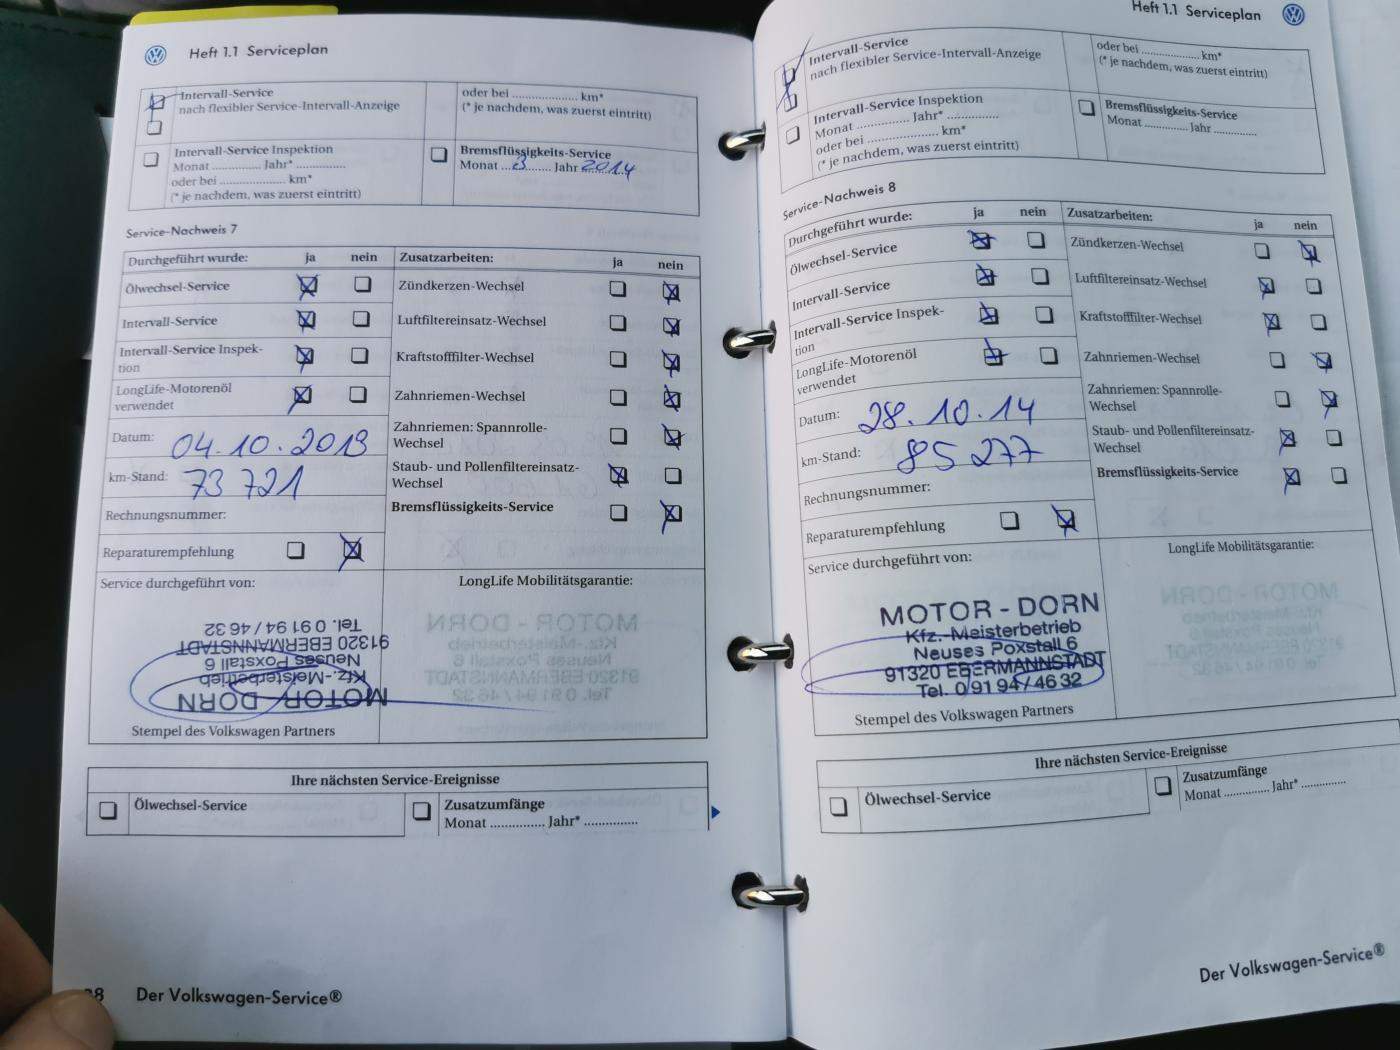 Heft 1.1 Serviceplan
Intervall-Service
nach flexibler Service-Intervall-Anzeige
oder bei .................... km*
(* je nachdem, was zuerst eintritt)
Intervall-Service Inspektion
Monat ............. Jahr* .............
oder bei .................... km*
(* je nachdem, was zuerst eintritt)
Bremsflüssigkeits-Service
Monat ...3....... Jahr 2014
Service-Nachweis 7
Durchgeführt wurde: ja nein
Ölwechsel-Service
Intervall-Service
Intervall-Service Inspek-
tion
LongLife-Motorenöl
verwendet
Datum: 04.10.2013
km-Stand: 73 721
Rechnungsnummer:
Reparaturempfehlung
Zusatzarbeiten: ja nein
Zündkerzen-Wechsel
Luftfiltereinsatz-Wechsel
Kraftstofffilter-Wechsel
Zahnriemen-Wechsel
Zahnriemen: Spannrolle-
Wechsel
Staub- und Pollenfiltereinsatz-
Wechsel
Bremsflüssigkeits-Service
Service durchgeführt von:
LongLife Mobilitätsgarantie:
MOTOR - DORN
Kfz.-Meisterbetrieb
Neuses Poxstall 6
91320 EBERMANNSTADT
Tel. 0 91 94 / 46 32
Stempel des Volkswagen Partners
Ihre nächsten Service-Ereignisse
Ölwechsel-Service
Zusatzumfänge
Monat ............... Jahr* ...............
Der Volkswagen-Service®
Heft 1.1 Serviceplan
Intervall-Service
nach flexibler Service-Intervall-Anzeige
oder bei .................... km*
(* je nachdem, was zuerst eintritt)
Intervall-Service Inspektion
Monat ............... Jahr* ...............
oder bei .................... km*
(* je nachdem, was zuerst eintritt)
Bremsflüssigkeits-Service
Monat ............... Jahr ...............
Service-Nachweis 8
Durchgeführt wurde: ja nein
Ölwechsel-Service
Intervall-Service
Intervall-Service Inspek-
tion
LongLife-Motorenöl
verwendet
Datum: 28.10.14
km-Stand: 85 277
Rechnungsnummer:
Reparaturempfehlung
Zusatzarbeiten: ja nein
Zündkerzen-Wechsel
Luftfiltereinsatz-Wechsel
Kraftstofffilter-Wechsel
Zahnriemen-Wechsel
Zahnriemen: Spannrolle-
Wechsel
Staub- und Pollenfiltereinsatz-
Wechsel
Bremsflüssigkeits-Service
Service durchgeführt von:
LongLife Mobilitätsgarantie:
MOTOR - DORN
Kfz.-Meisterbetrieb
Neuses Poxstall 6
91320 EBERMANNSTADT
Tel. 0 91 94 / 46 32
Stempel des Volkswagen Partners
Ihre nächsten Service-Ereignisse
Ölwechsel-Service
Zusatzumfänge
Monat ............... Jahr* ...............
Der Volkswagen-Service®